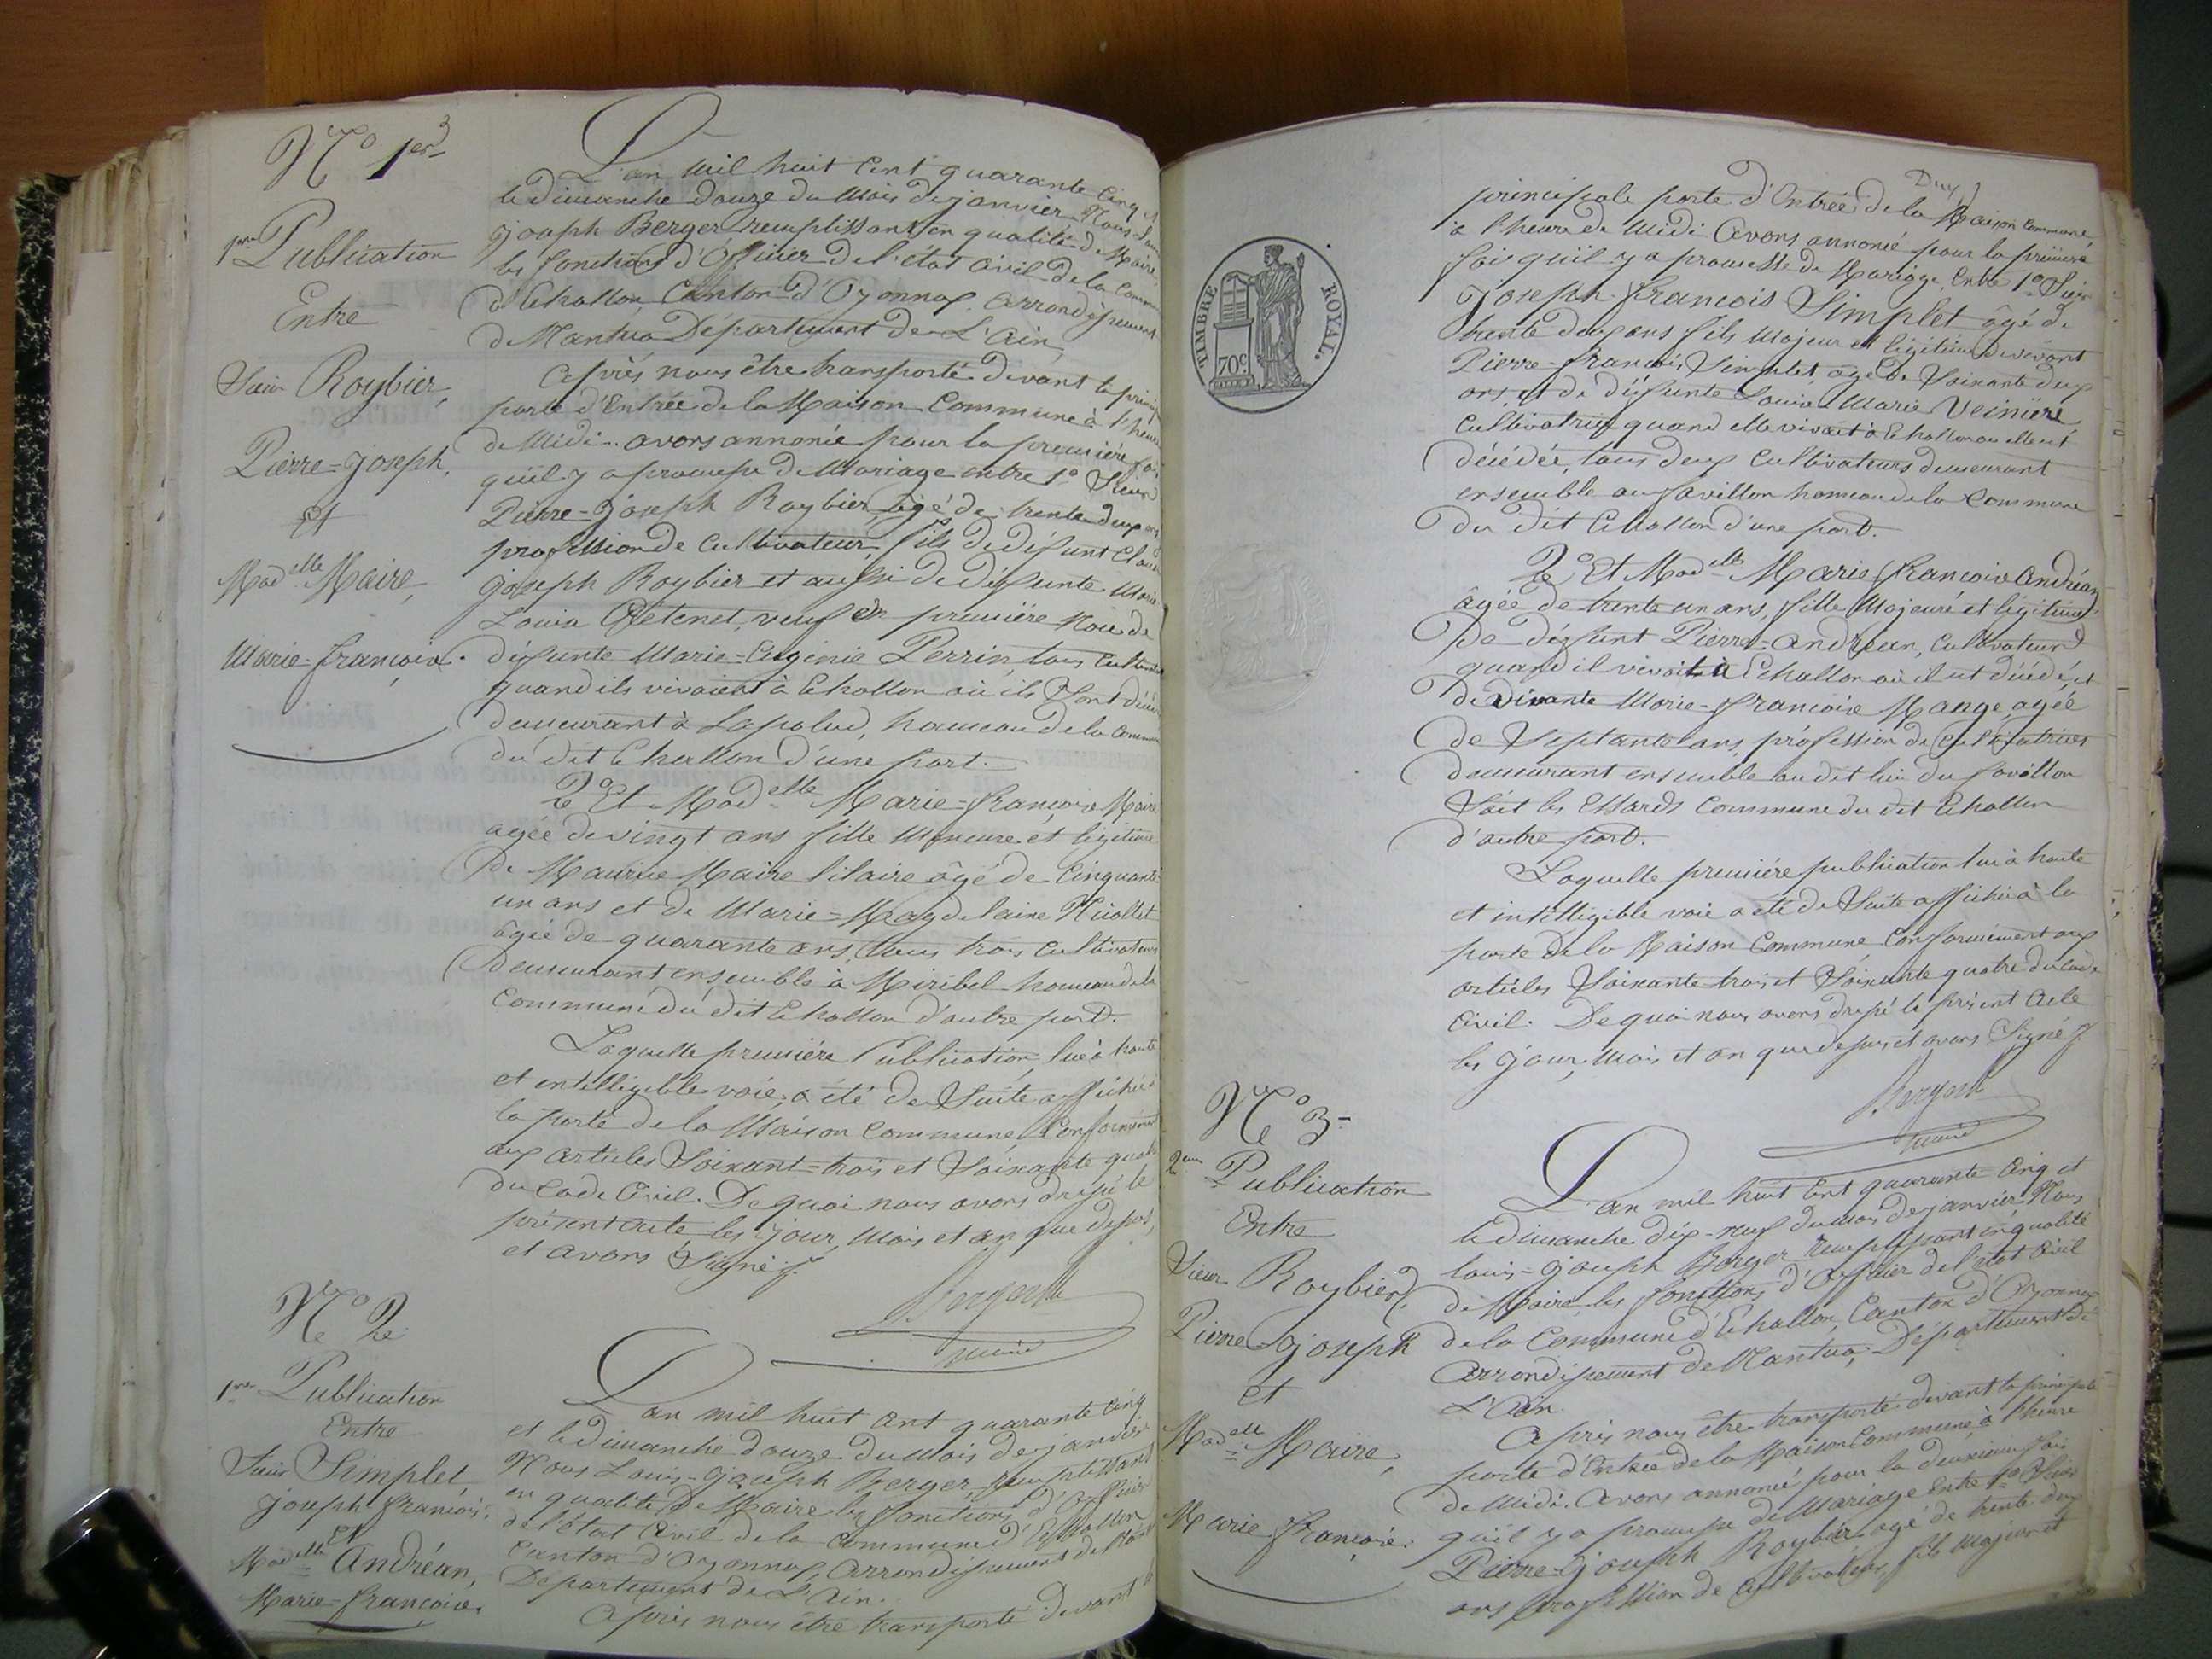 N.o 1er
1re Publication
Entre
Sieur Roybier,
Pierre=Joseph,
et
Madelle Maire,
Marie=françoise.
L'an mil huit Cent quarante Cinq et
le dimanche douze du Mois de janvier Nous Louis
joseph Berger remplissant en qualité de Maire
les fonctions d'Officier de l'état Civil de la Commune
d'Echallon, Canton d'Oyonnax, arrondissement
de Nantua Département de L'Ain,
Après nous être transporté devant la princip
porte d'Entrée de la Maison Commune à l'heure
de Midi. avons annoncé pour la première fois
qu'il y a promesse de Mariage entre 1.o Sieur
Pierre=Joseph Roybier, âgé de trente deux ans
profession de Cultivateur, fils de défunt Claude
joseph Roybier et aussi de défunte Marie
Louise veuf en première Noce de
défunte Marie=Eugénie Perrin, tous Cultivat
quand ils vivaient à Echallon où ils Sont décé
demeurant à Lapalud, hameau de la Commune
du dit Echallon d'une part.
2.o Et Madelle Marie=françoise Maire
agée de vingt ans fille Mineure et légitime
de Maurice Maire hilaire âgé de Cinquante
un ans et de Marie=Magdelaine Nicollet
âgée de quarante ans, tous trois Cultivateurs
demeurant ensemble à Miribel hameau de la
Commune du dit Echallon d'autre part.
Laquelle première Publication, lue à haute
et intelligible voie, a été de Suite affichée à
la porte de la Maison Commune, Conformément
aux articles Soixant=trois et Soixante quatre
du Code Civil. De quoi nous avons drapé le
présent acte les jour, Mois et an que dessus,
et avons Signé.
Berger
maire
N.o 2
1re Publication
Entre
Sieur Simplet
joseph françois,
et
Madelle Andréan,
Marie=françoise.
L'an mil huit Cent quarante Cinq
et le dimanche douze du Mois de janvier
Nous Louis-joseph Berger, remplissant
en qualité de Maire les fonctions d'Officier
de l'état Civil de la Commune d'Echallon
Canton d'Oyonnax, Arrondissement de Nantua
Département de L'Ain.
Après nous être transporté devant la
Deux
principale porte d'Entrée de la Maison Commune
à l'heure de Midi Avons annoncé pour la première
fois qu'il y a promesse de Mariage, Entre 1.o Sieur
Joseph françois Simplet âgé de
trente deux ans fils Majeur et légitime de vivant
Pierre-françois Simplet, âgé de Soixante deux
ans, et de défunte Louise Marie Veiniere
Cultivatrice quand elle vivait à Echallon où elle est
décédée, tous deux Cultivateurs demeurant
ensemble au favillon hameau de la Commune
du dit Echallon d'une part.
2.o Et Madelle Marie-françoise Andréan
âgée de trente un ans, fille Majeure et légitime
de défunt Pierre Andréan, Cultivateur
quand il vivait à Echallon où il est décédé, et
de vivante Marie-françoise Mange, agée
de Septante ans, profession de Cultivatrices
demeurant ensemble au dit lieu du favillon
Soit les Essards Commune du dit Echallon
d'autre part.
Laquelle première publication lue à haute
et intelligible voie a été de Suite affichée à la
porte de la Maison Commune, Conformément aux
articles Soixante-trois et Soixante quatre du Code
Civil. De quoi nous avons drapé le présent Acte
les jour, Mois et an que dessus et avons Signé.
Berger
maire
TIMBRE ROYAL.
70c.
N.o 3
2me Publication
Entre
Sieur Roybier,
Pierre-joseph
et
Madelle Maire,
Marie françoise.
L'an mil huit Cent quarante Cinq et
le dimanche dix-neuf du Mois de janvier Nous
louis-joseph Berger remplissant en qualité
de Maire, les fonctions d'Officier de l'état Civil
de la Commune d'Echallon, Canton d'Oyonnax
Arrondissement de Nantua, Département de
L'Ain.
Après nous être transporté devant la principale
porte d'Entrée de la Maison Commune, à l'heure
de Midi. avons annoncé pour la deuxieme fois
qu'il y a promesse de Mariage Entre 1.o Sieur
Pierre-joseph Roybier, agé de trente deux
ans profession de Cultivateur, fils Majeur et